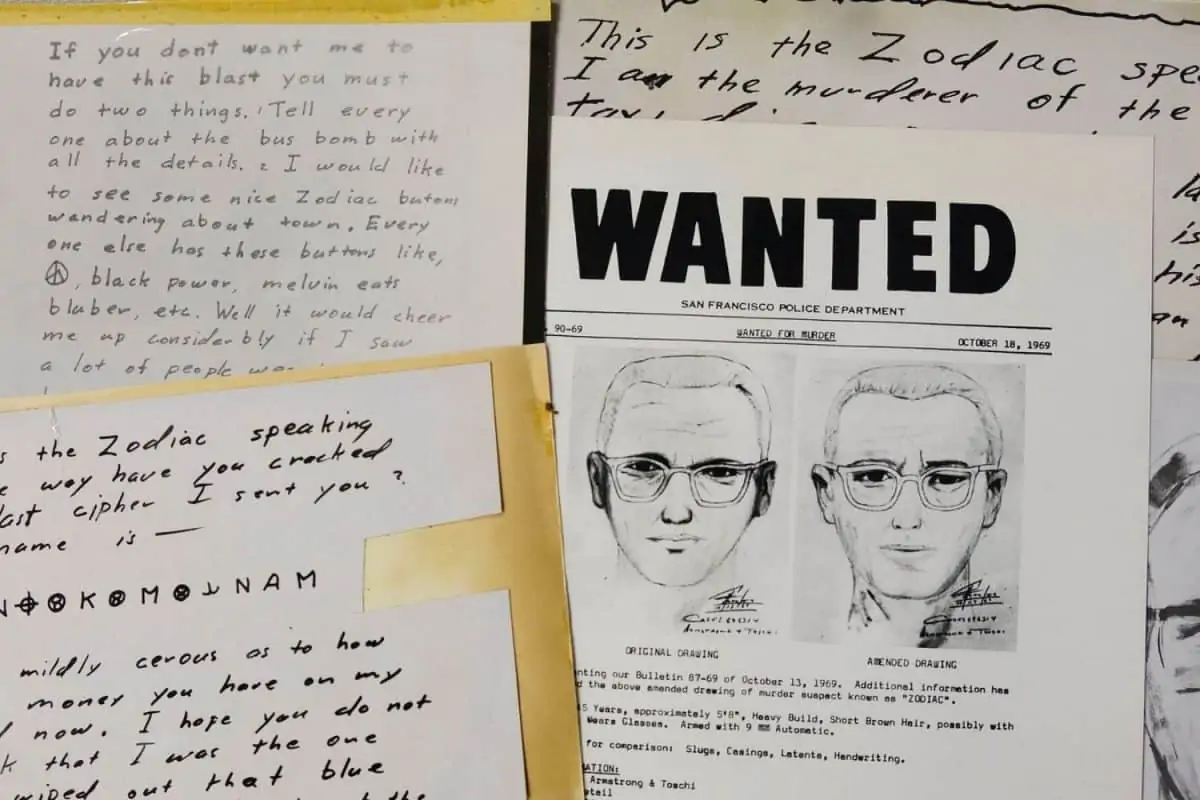 If you dont want me to
have this blast you must
do two things. 1 Tell every
one about the bus bomb with
all the details. 2 I would like
to see some nice Zodiac butons
wandering about town. Every
one else has these buttons like,
☮, black power, melvin eats
bluber, etc. Well it would cheer
me up considerbly if I saw
a lot of people
This is the Zodiac
I am the murderer of the
the Zodiac speaking
way have you cracked
last cipher I sent you?
name is —
N⌖⊗K⊗M⊗⅃NAM
mildly cerous as to how
money you have on my
now. I hope you do not
that I was the one
wiped out that blue
the
WANTED
SAN FRANCISCO POLICE DEPARTMENT
90-69 WANTED FOR MURDER OCTOBER 18, 1969
ORIGINAL DRAWING AMENDED DRAWING
our Bulletin 87-69 of October 13, 1969. Additional information has
the above amended drawing of murder suspect known as "ZODIAC".
Years, approximately 5'8", Heavy Build, Short Brown Hair, possibly with
Wears Glasses. Armed with 9 mm Automatic.
for comparison: Slugs, Casings, Latents, Handwriting.
Armstrong & Toschi
is
his